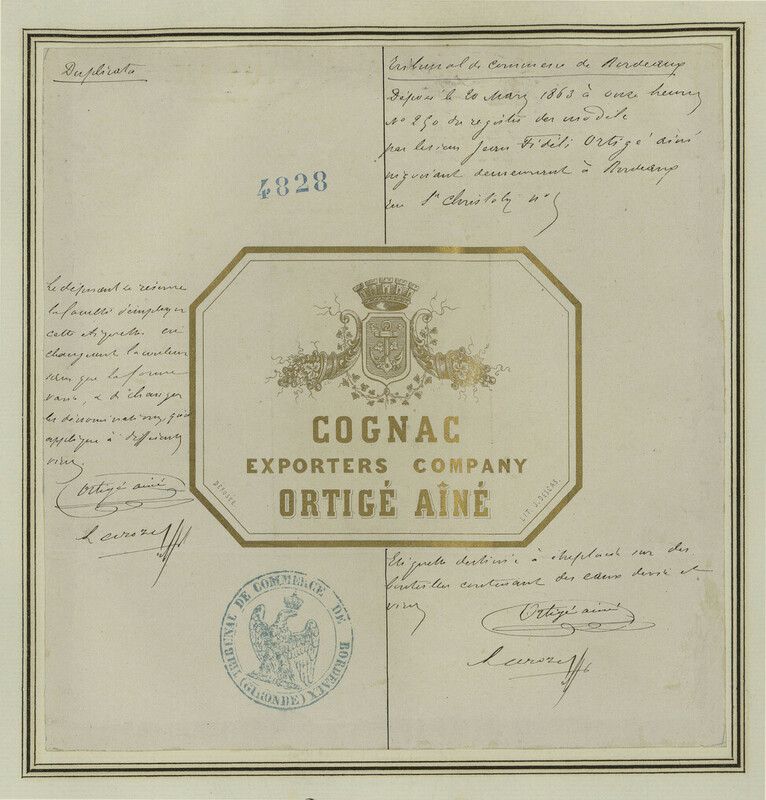 Duplicata
Tribunal de commerce de Bordeaux
Déposé le 20 Mars 1863 à onze heures
N° 250 du registre des modèle
par lesieur Jean Fidèle Ortigé ainé
négociant demeurant à Bordeaux
rue St Christoly n°
4828
Le déposant se réserve
la faculté d'employer
cette étiquette en
changeant la couleur
que la forme
vans, & de changer
les dénominations, qu'il
applique à différents
vins.
Ortigé ainé
COGNAC
EXPORTERS COMPANY
ORTIGÉ AÎNÉ
DÉPOSÉE
LIT. J. DESCAS.
Etiquette destinée à être placée sur des
bouteilles contenant des eaux devie et
vins
Ortigé ainé
TRIBUNAL DE COMMERCE DE BORDEAUX
(GIRONDE)